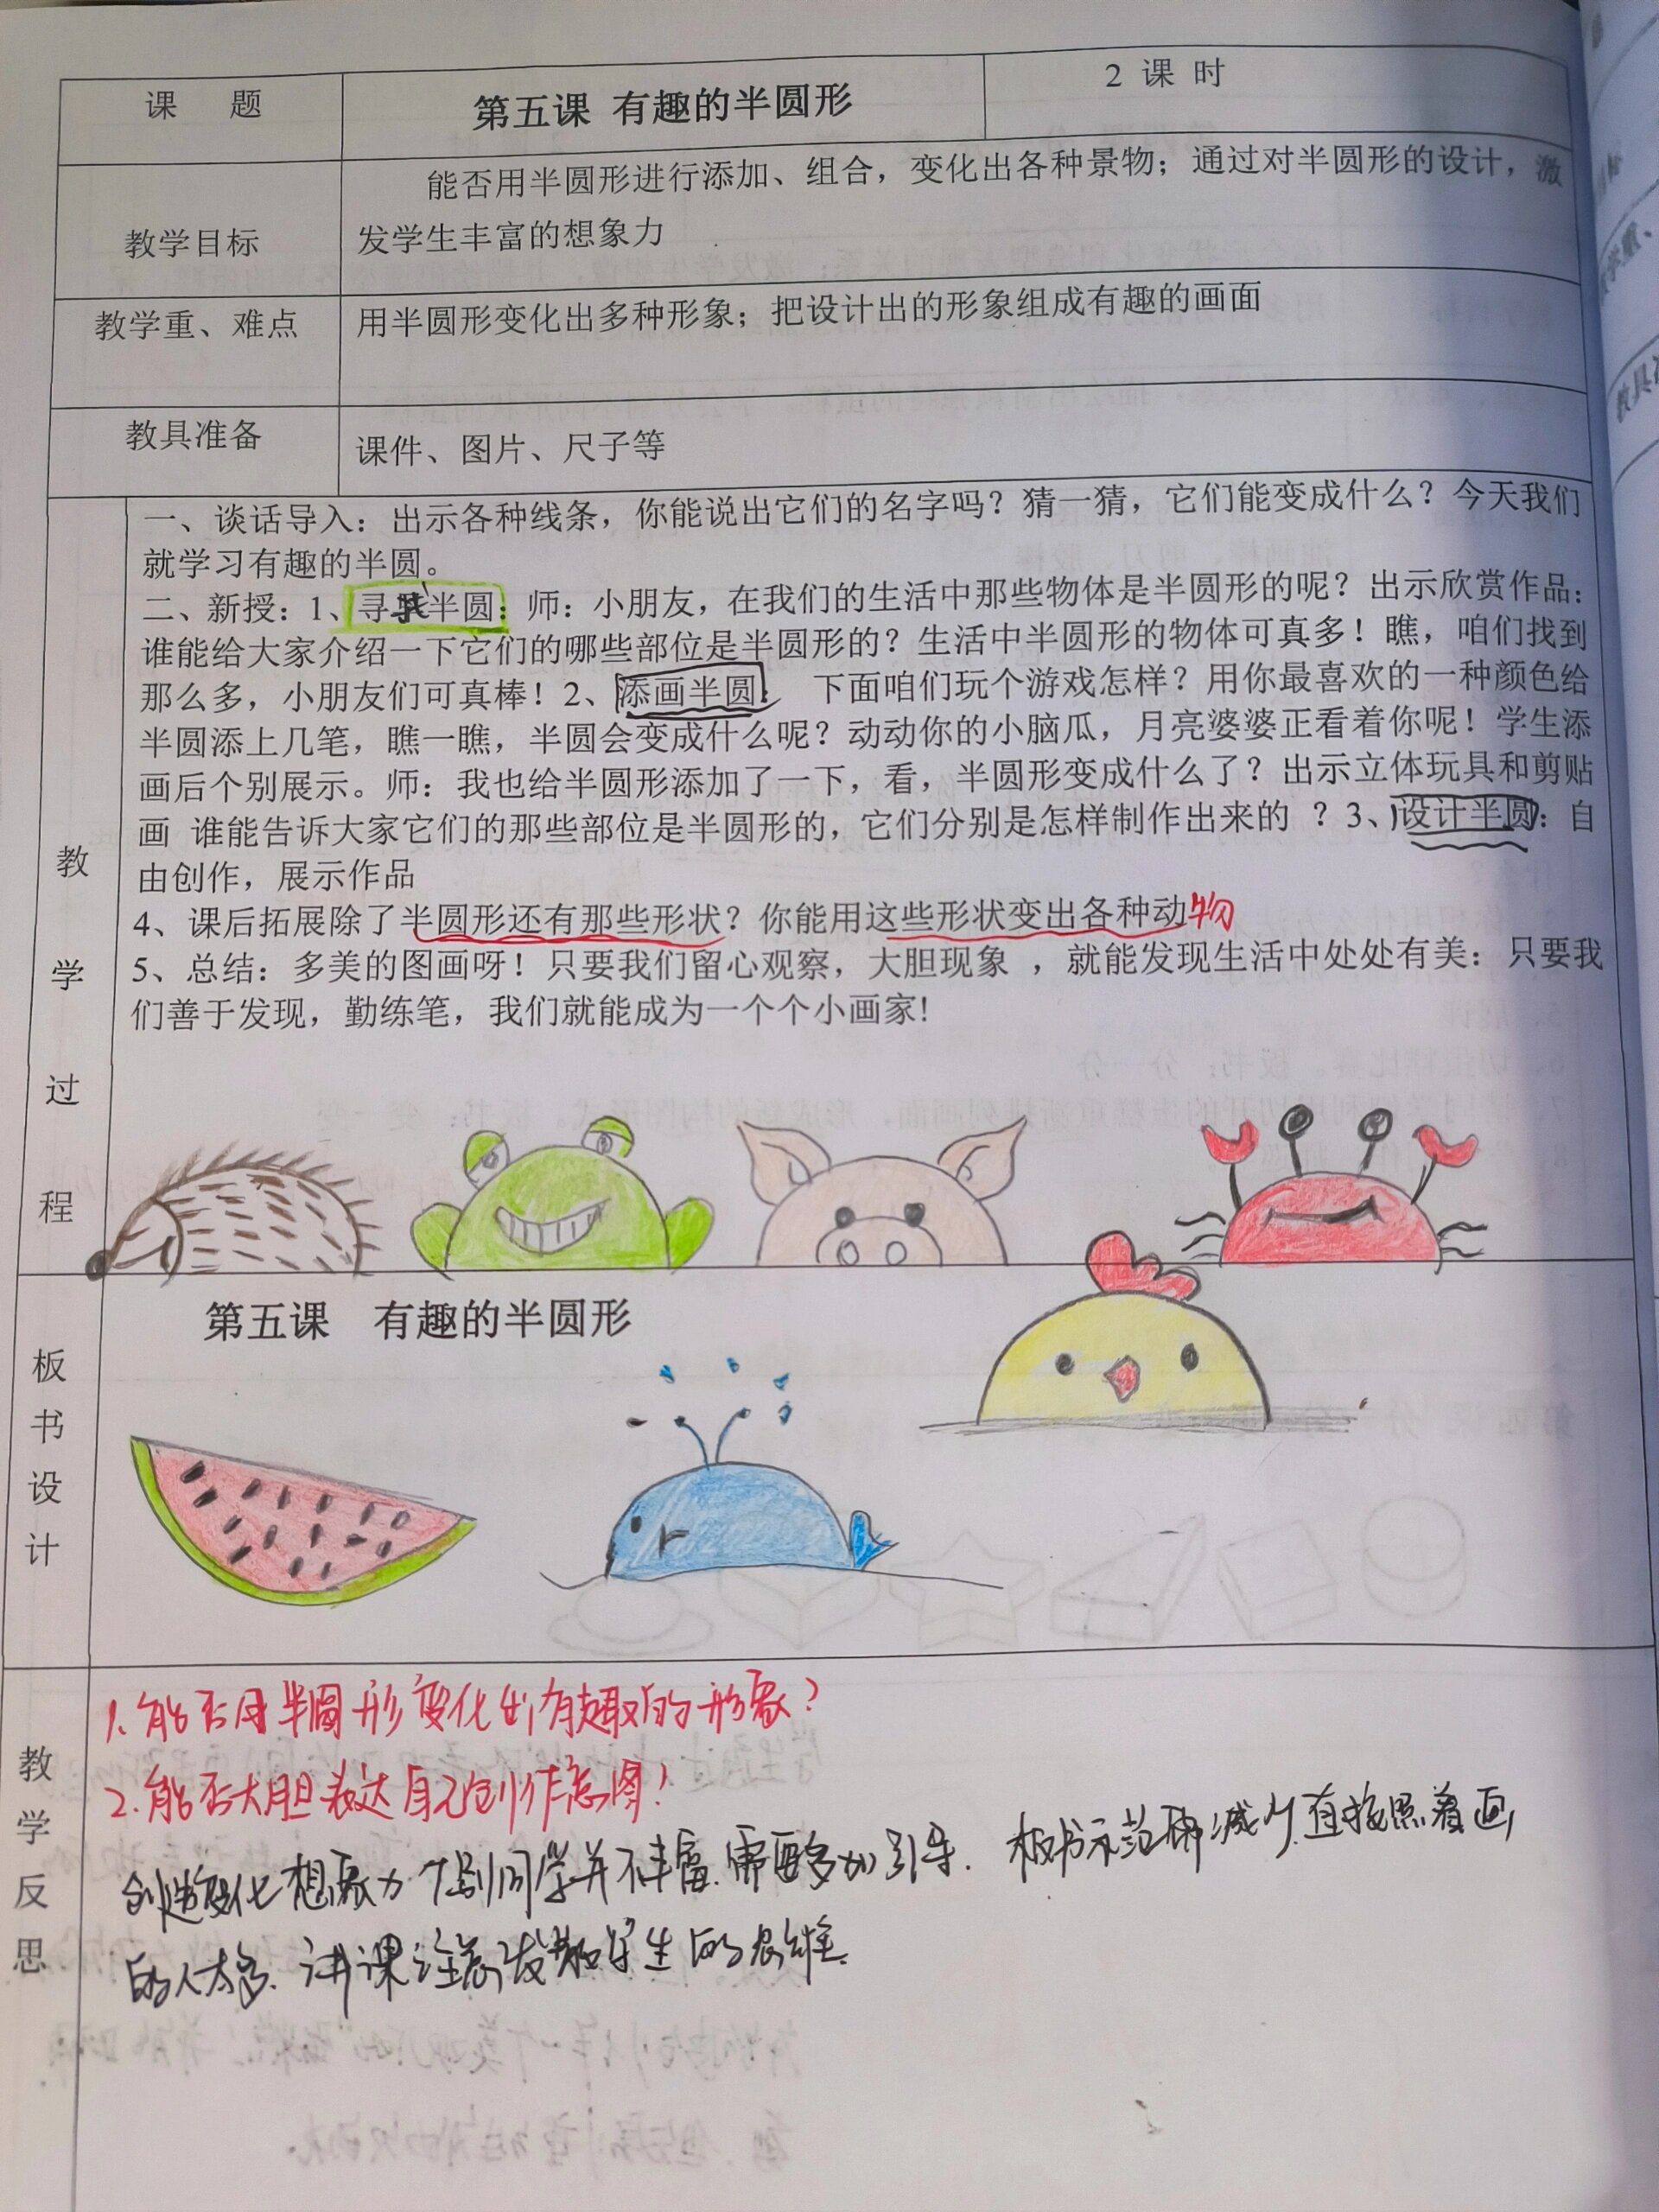 课 题
第五课 有趣的半圆形
2 课 时
教学目标
能否用半圆形进行添加、组合，变化出各种景物；通过对半圆形的设计，激
发学生丰富的想象力
教学重、难点
用半圆形变化出多种形象；把设计出的形象组成有趣的画面
教具准备
课件、图片、尺子等
教学过程
一、谈话导入：出示各种线条，你能说出它们的名字吗？猜一猜，它们能变成什么？今天我们
就学习有趣的半圆。
二、新授：1、寻找半圆：师：小朋友，在我们的生活中那些物体是半圆形的呢？出示欣赏作品：
谁能给大家介绍一下它们的哪些部位是半圆形的？生活中半圆形的物体可真多！瞧，咱们找到
那么多，小朋友们可真棒！2、添画半圆： 下面咱们玩个游戏怎样？用你最喜欢的一种颜色给
半圆添上几笔，瞧一瞧，半圆会变成什么呢？动动你的小脑瓜，月亮婆婆正看着你呢！学生添
画后个别展示。师：我也给半圆形添加了一下，看，半圆形变成什么了？出示立体玩具和剪贴
画 谁能告诉大家它们的那些部位是半圆形的，它们分别是怎样制作出来的 ？3、设计半圆：自
由创作，展示作品
4、课后拓展除了半圆形还有那些形状？你能用这些形状变出各种动物
5、总结：多美的图画呀！只要我们留心观察，大胆现象 ，就能发现生活中处处有美：只要我
们善于发现，勤练笔，我们就能成为一个个小画家！
板书设计
第五课 有趣的半圆形
教学反思
1.能否用半圆形变化出有趣的形象？
2.能否大胆表达自己创作意图？
创造变化想象力个别同学并不丰富.需要多加引导. 板书示范稍减少.直接照着画
的人太多.讲课注意发散学生的思维.